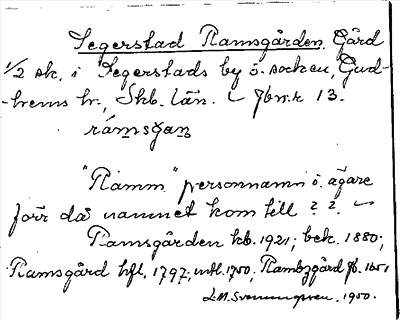 Segerstad Ramsgården. Gård
1/2 sk. i Segerstads by o. socken, Gud-
-hems hr., Skb. län. Jbnr 13.
råmsgan
"Ramm" personnamn o. ägare
förr då namnet kom till ? ?.
Ramsgården kb. 1921; bek. 1880;
Ramsgård hfl. 1797; mtl. 1750, Rambzgård Jb. 1651
L.M. Svenungsson. 1950.